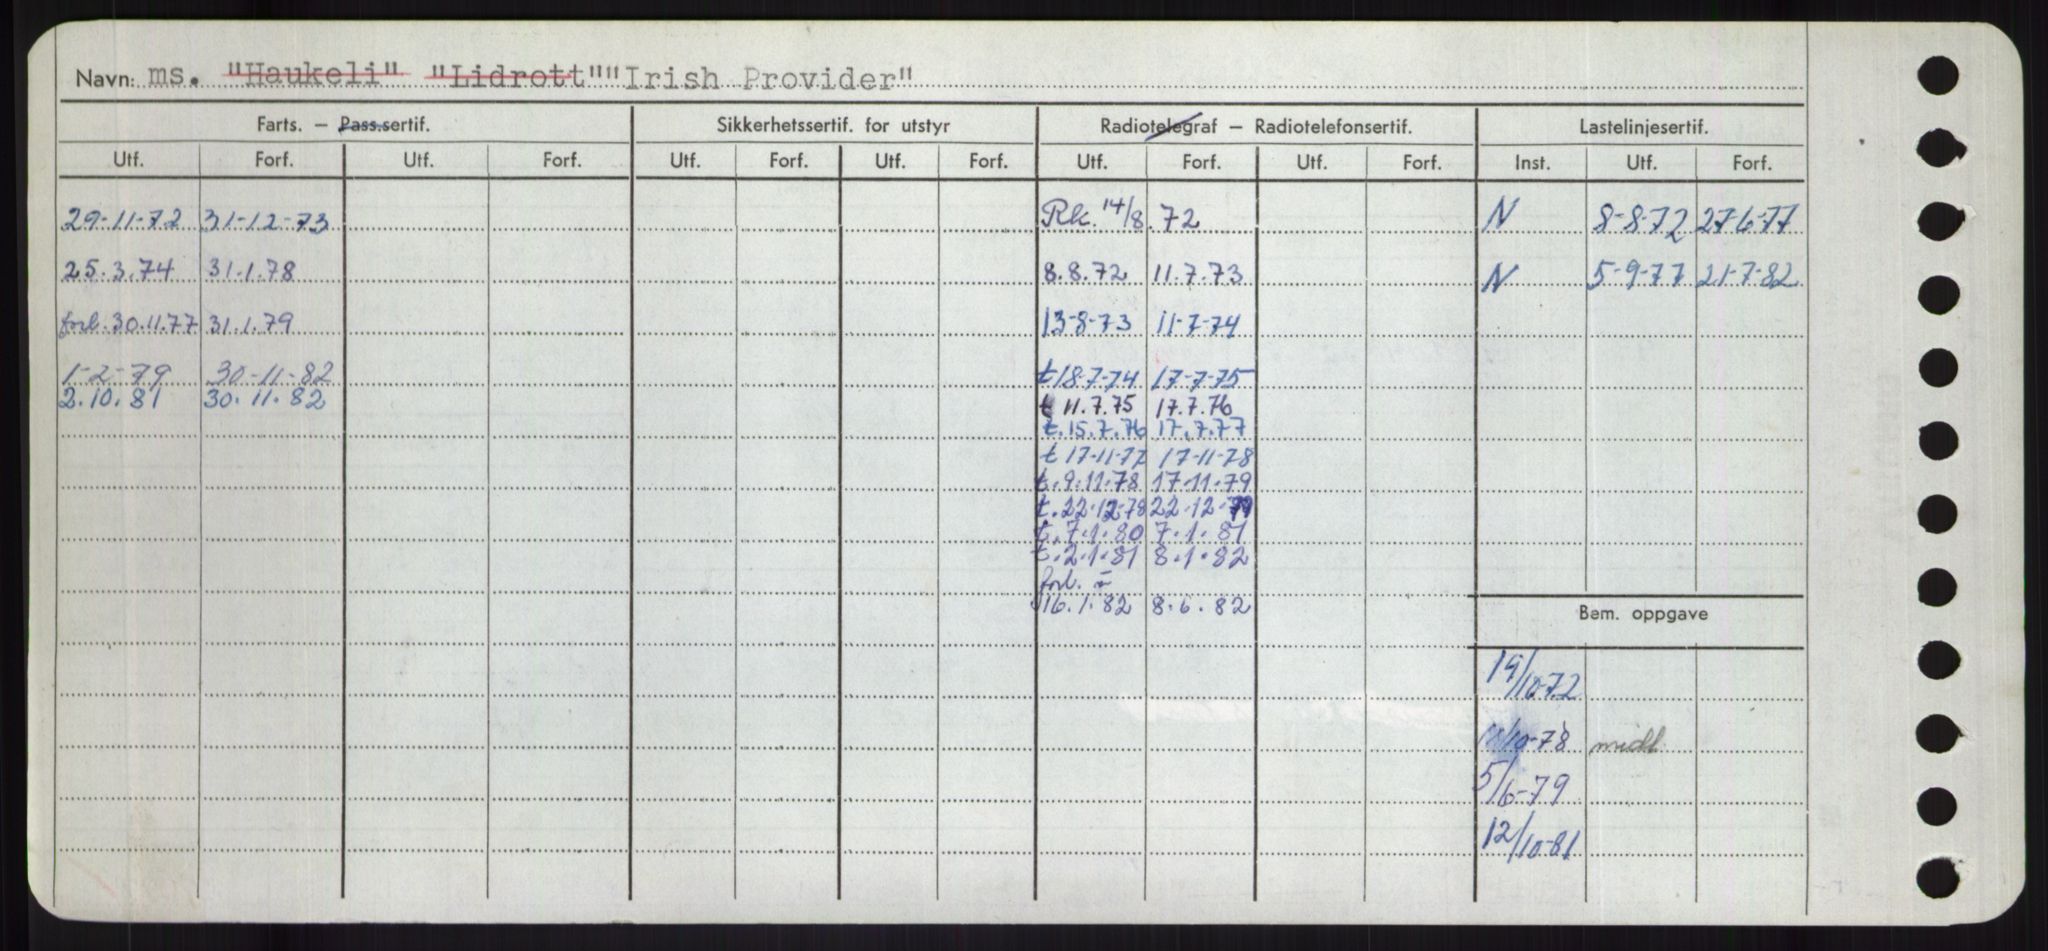 Navn: ms. "Haukeli" "Lidrott" "Irish Provider"
Farts. – Pass.sertif. Sikkerhetssertif. for utstyr Radiotelegraf – Radiotelefonsertif. Lastelinjesertif.
Utf. Forf. Utf. Forf. Utf. Forf. Utf. Forf. Utf. Forf. Utf. Forf. Inst. Utf. Forf.
29-11-72 31-12-73 Rk. 14/8.72 N 8-8-72 27-6-77
25.3.74 31.1.78 8.8.72 11.7.73 N 5-9-77 21-7-82
forl. 30.11.77 31.1.79 13-8-73 11-7-74
1-2-79 30-11-82 t 18-7-74 17-7-75
2.10.81 30.11.82 t 11.7.75 17.7.76
t. 15.7.76 17.7.77
t 17-11-77 17-11-78
t. 9.11.78 17.11.79
t. 22.12.78 22.12.79
t. 7.1.80 7.1.81
t. 2.1.81 8.1.82
forl.
16.1.82 8.6.82
Bem. oppgave
19/10-72
/10-78 midl.
5/6-79
12/10-81